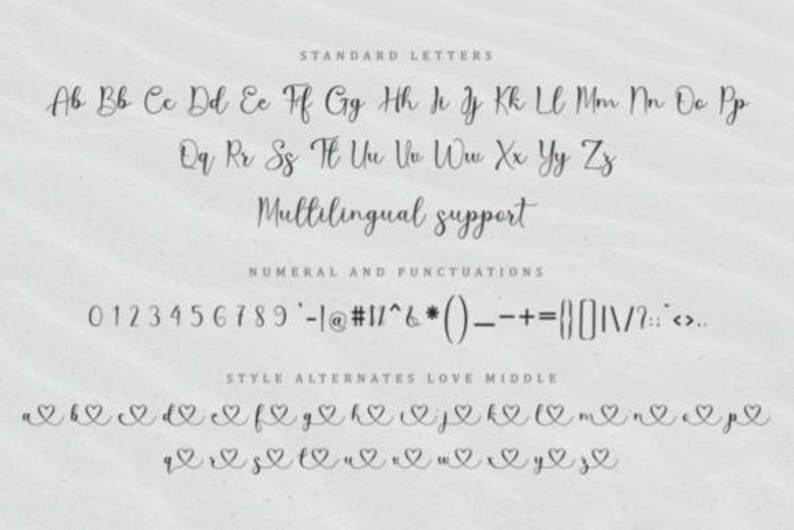 STANDARD LETTERS
Aa Bb Cc Dd Ee Ff Gg Hh Ii Jj Kk Ll Mm Nn Oo Pp
Qq Rr Ss Tt Uu Vv Ww Xx Yy Zz
Multilingual support
NUMERAL AND PUNCTUATIONS
0 1 2 3 4 5 6 7 8 9
STYLE ALTERNATES LOVE MIDDLE
a♡ b♡ c♡ d♡ e♡ f♡ g♡ h♡ i♡ j♡ k♡ l♡ m♡ n♡ o♡ p♡
q♡ r♡ s♡ t♡ u♡ v♡ w♡ x♡ y♡ z♡